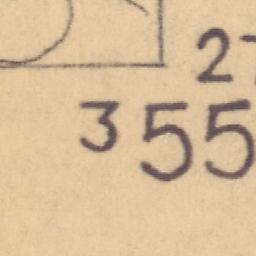 2
355